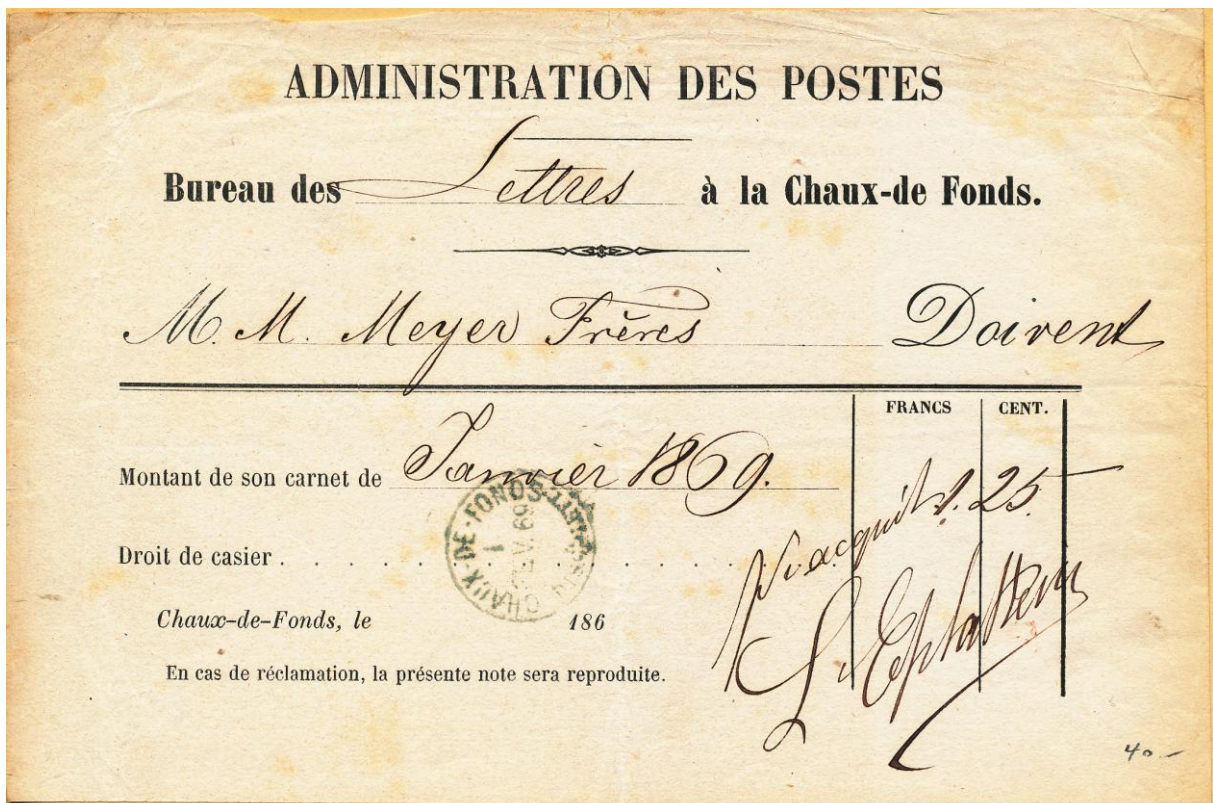 ADMINISTRATION DES POSTES
Bureau des Lettres à la Chaux-de Fonds.
M. M. Meyer Frères Doivent
FRANCS CENT.
Montant de son carnet de Janvier 1869.
25
Droit de casier
acquit
CHAUX-DE-FONDS
1
69
Chaux-de-Fonds, le 186
En cas de réclamation, la présente note sera reproduite.
40.-